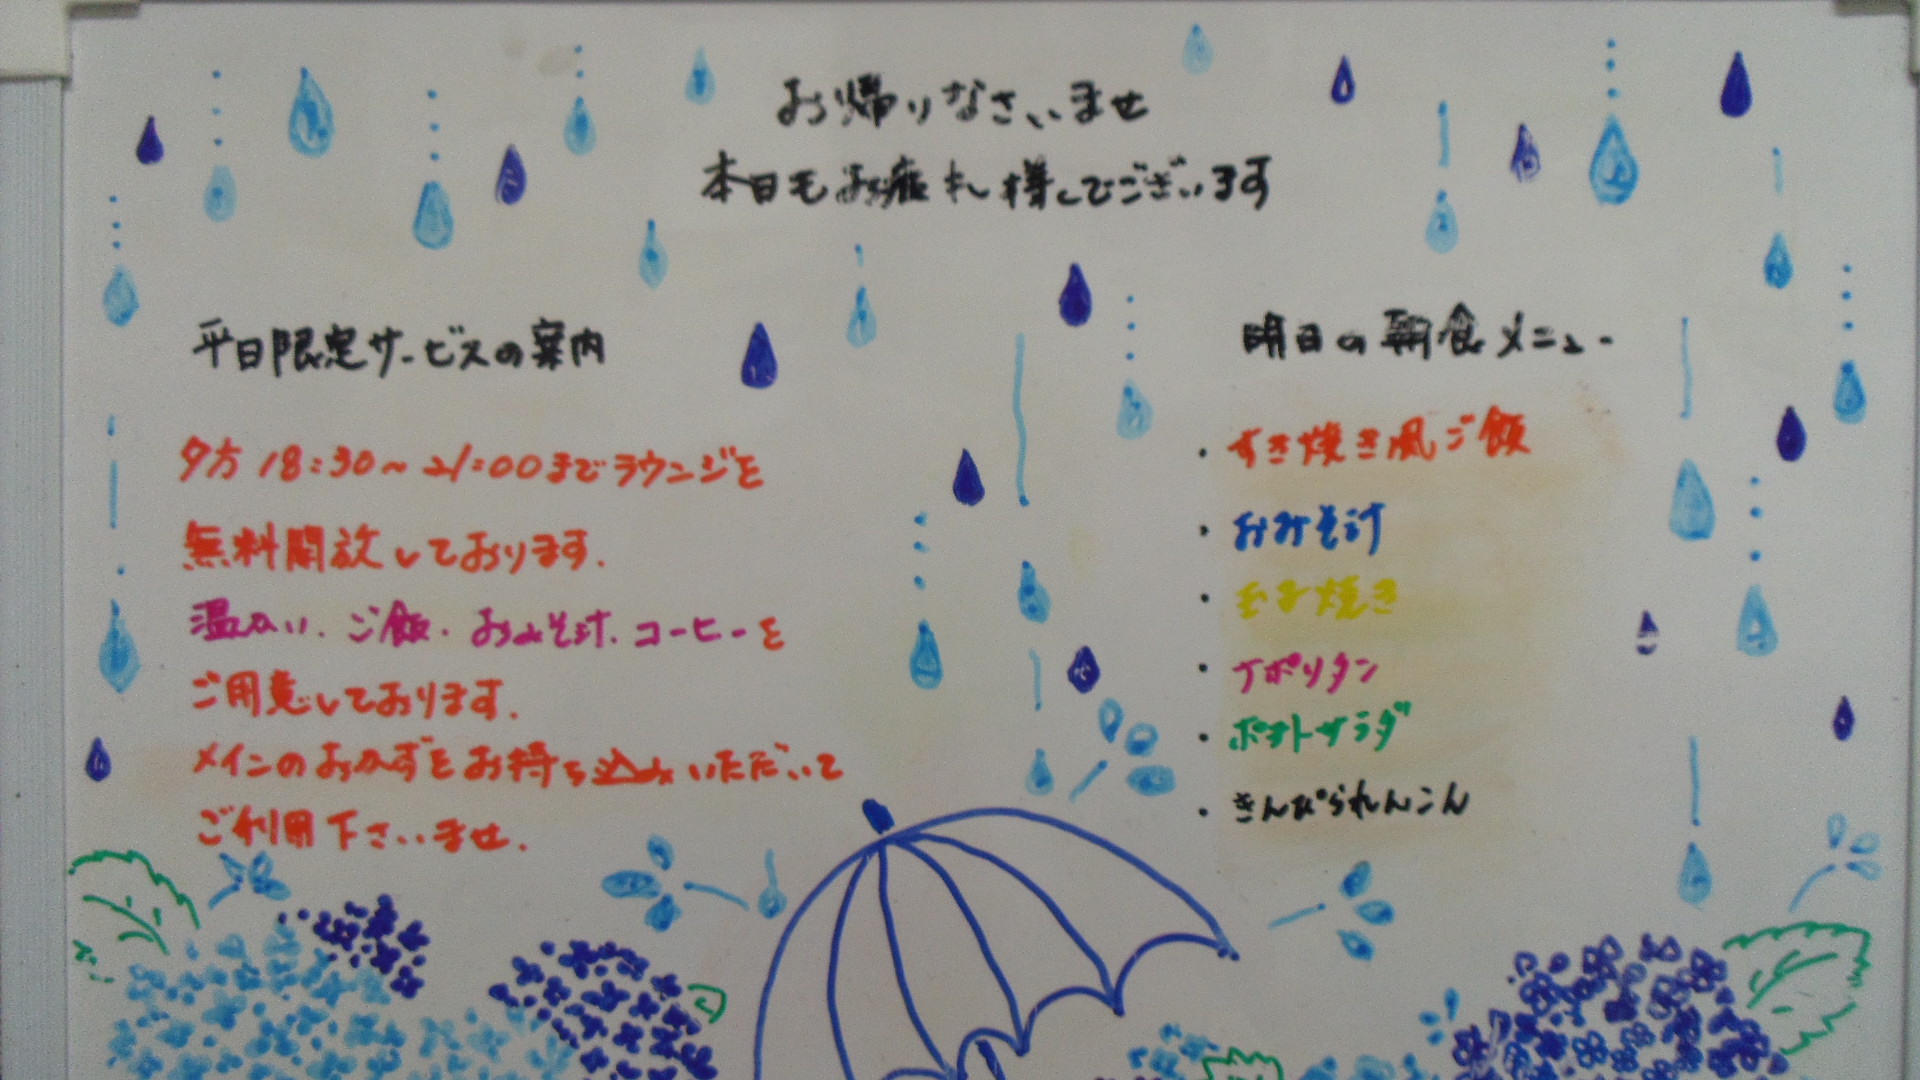 お帰りなさいませ
本日もお疲れ様でございます
平日限定サービスの案内
夕方18:30~21:00までラウンジを
無料開放しております.
温かい、ご飯・おみそ汁、コーヒーを
ご用意しております.
メインのおかずをお持ち込みいただいて
ご利用下さいませ.
明日の朝食メニュー
・すき焼き風ご飯
・おみそ汁
・玉子焼き
・ナポリタン
・ポテトサラダ
・きんぴられんこん